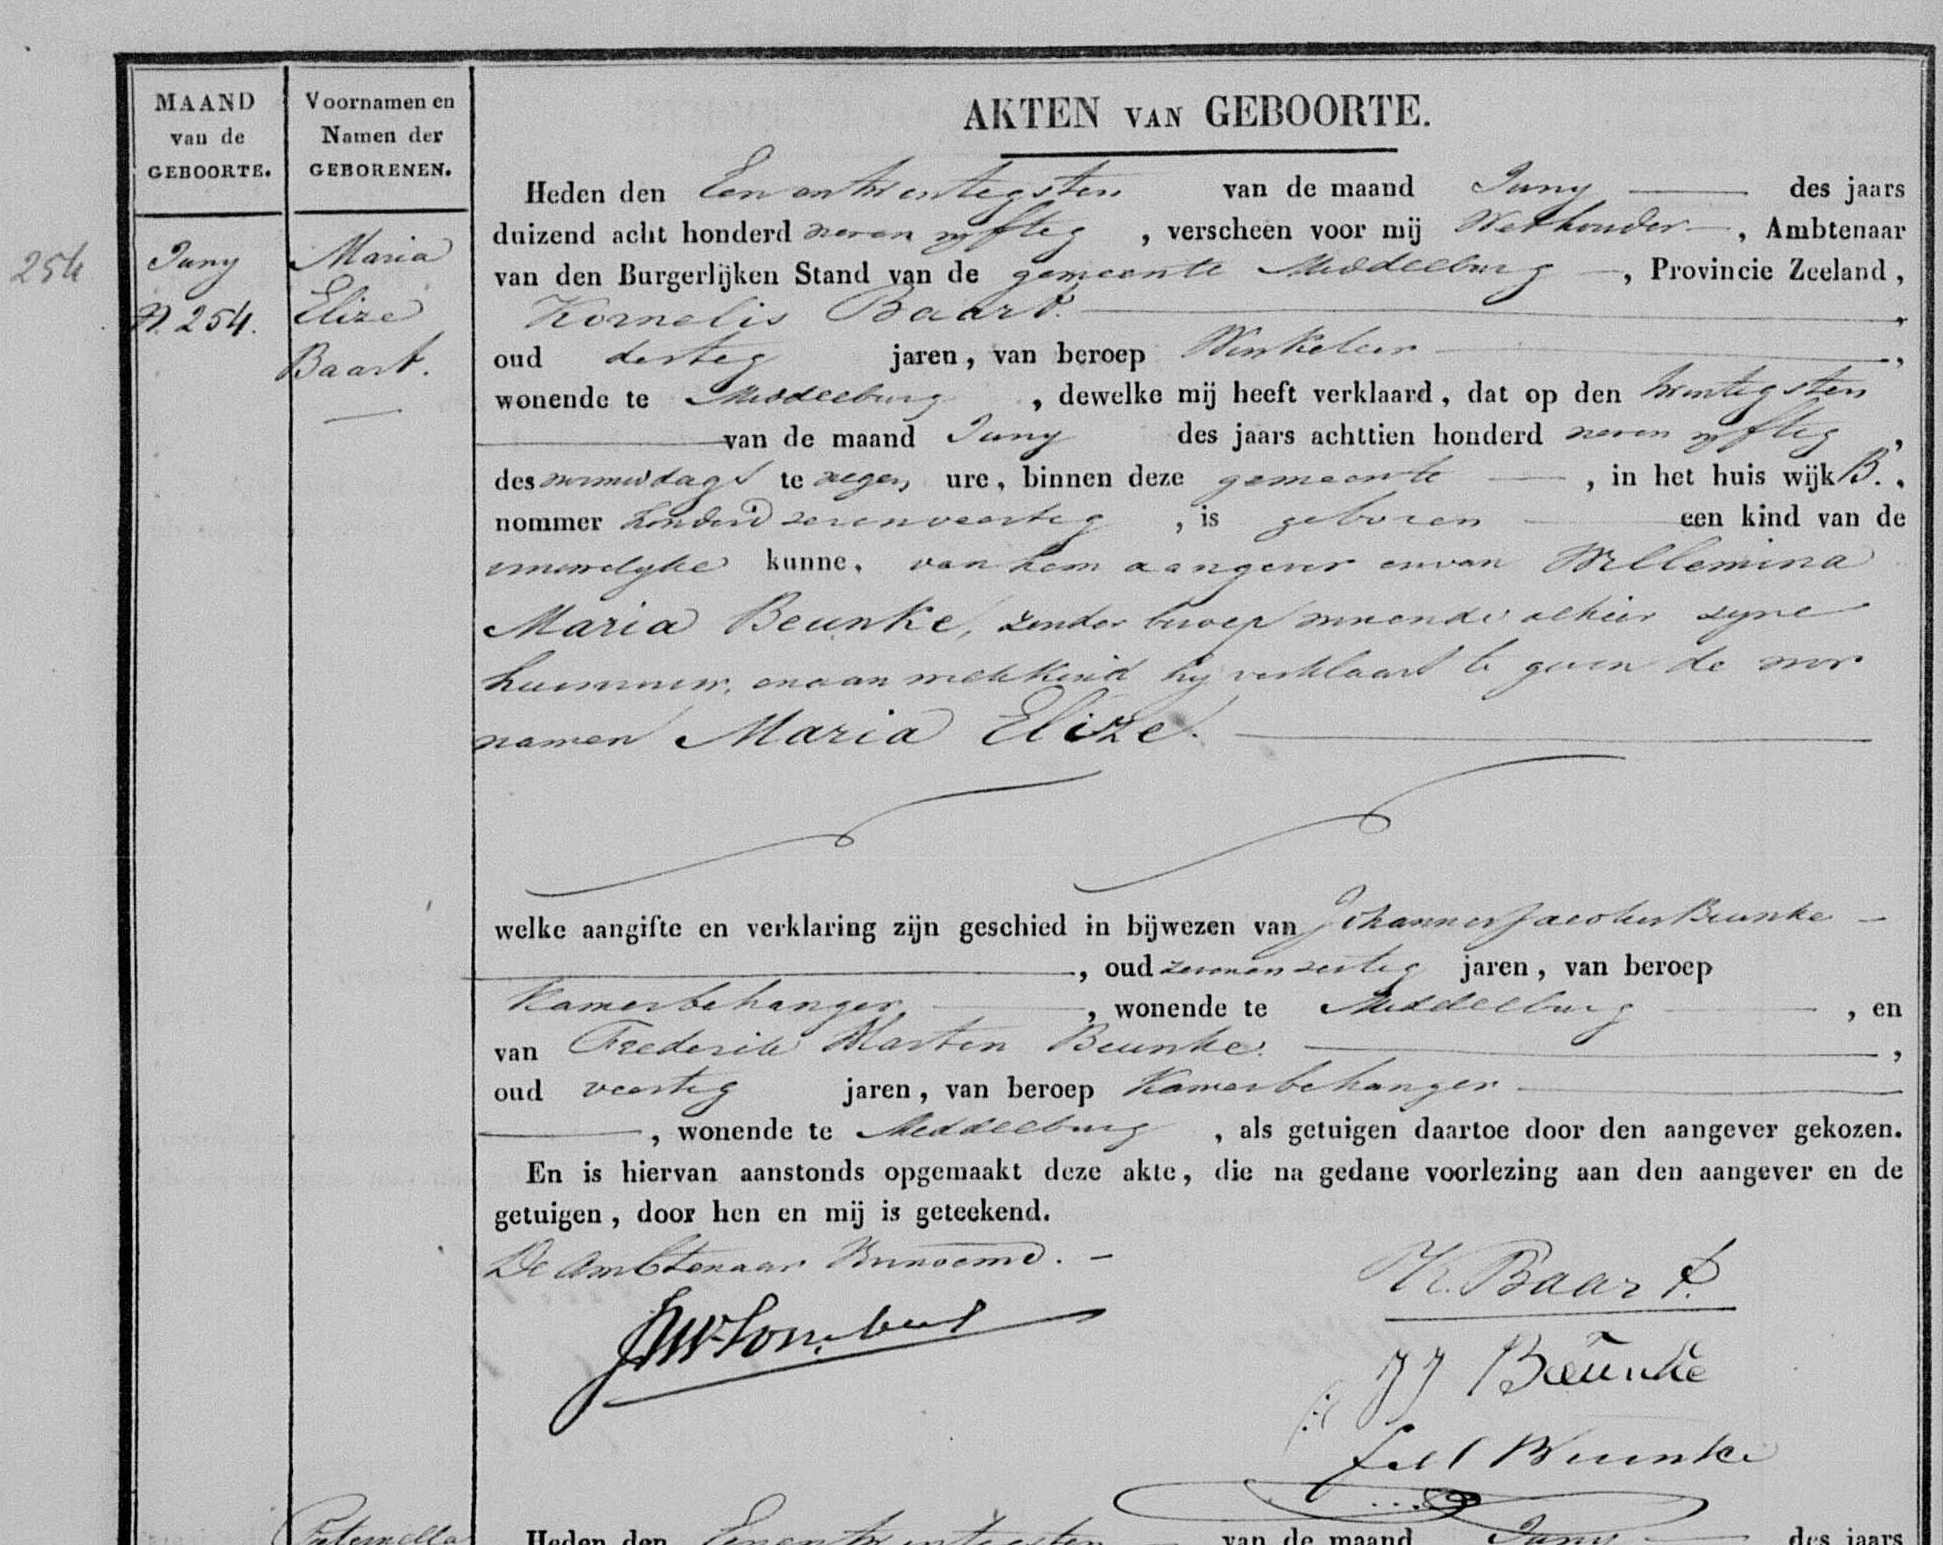 AKTEN VAN GEBOORTE.
MAAND
van de
GEBOORTE.
Voornamen en
Namen der
GEBORENEN.
254
Juny
N. 254.
Maria
Elize
Baart.
Heden den Een en twentegsten van de maand Juny des jaars
duizend acht honderd zeven vyfteg, verscheen voor mij Wethouder, Ambtenaar
van den Burgerlijken Stand van de gemeente Middelburg, Provincie Zeeland,
Kornelis Baart.
oud derteg jaren, van beroep Winkelier,
wonende te Middelburg, dewelke mij heeft verklaard, dat op den twentegsten
van de maand Juny des jaars achttien honderd zeven vyfteg,
des voormiddags te negen ure, binnen deze gemeente, in het huis wijk B.,
nommer honderd zevenveerteg, is geboren een kind van de
vrouwelyke kunne, van hem aangever en van Willemina
Maria Beunke, zonder beroep wonende alhier zyne
huisvrouw, en aan welk kind hy verklaart te geven de voor
namen Maria Elize.
welke aangifte en verklaring zijn geschied in bijwezen van Johannes Jacobus Beunke
, oud zevenenzesteg jaren, van beroep
Kamerbehanger, wonende te Middelburg, en
van Frederik Marten Beunke.,
oud veerteg jaren, van beroep Kamerbehanger
, wonende te Middelburg, als getuigen daartoe door den aangever gekozen.
En is hiervan aanstonds opgemaakt deze akte, die na gedane voorlezing aan den aangever en de
getuigen, door hen en mij is geteekend.
De Ambtenaar voornoemd.
K. Baart.
JJ Beunke
Beunke
Heden den Eenentwintegsten van de maand Juny des jaars